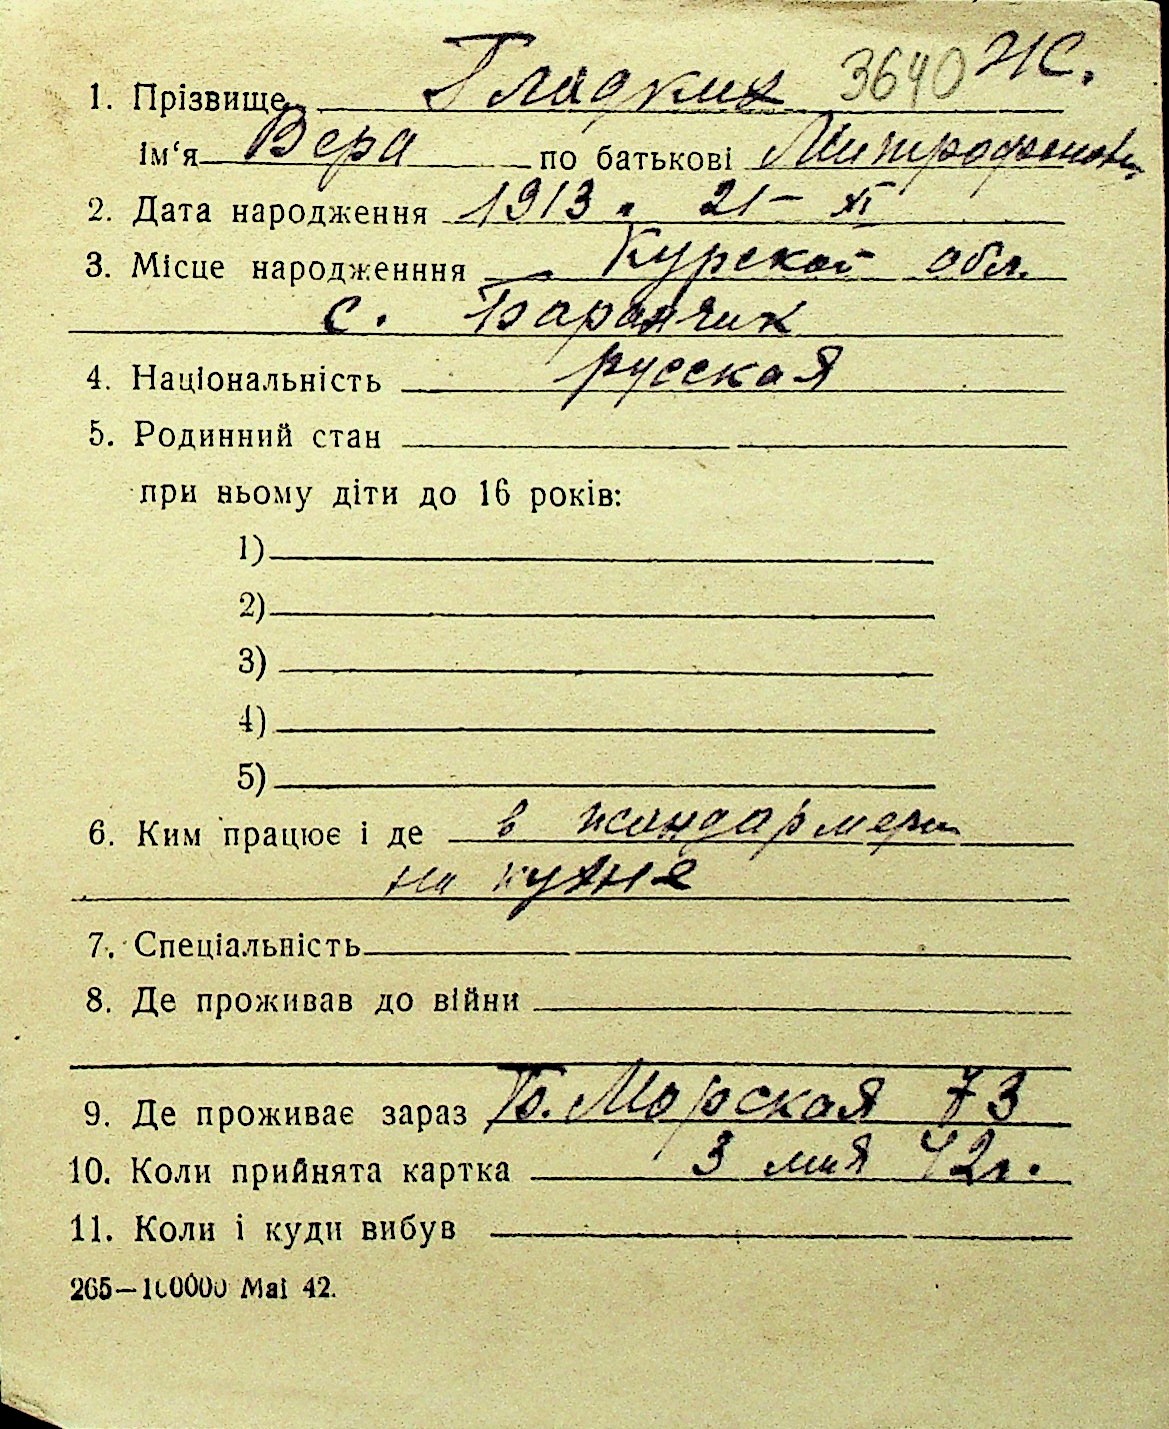 1. Прізвище Гладких 3640 Ж.
Ім‘я Вера по батькові Митрофановн
2. Дата народження 1913. 21 – XI
3. Місце народженння Курской обл.
с. Баранчик
4. Національність русская
5. Родинний стан
при ньому діти до 16 років:
1)
2)
3)
4)
5)
6. Ким працює і де в жандармери
на кухне
7. Спеціальність
8. Де проживав до війни
9. Де проживає зараз Б. Морская 73
10. Коли прийнята картка 3 мая 42г.
11. Коли і куди вибув
265—100000 Mai 42.